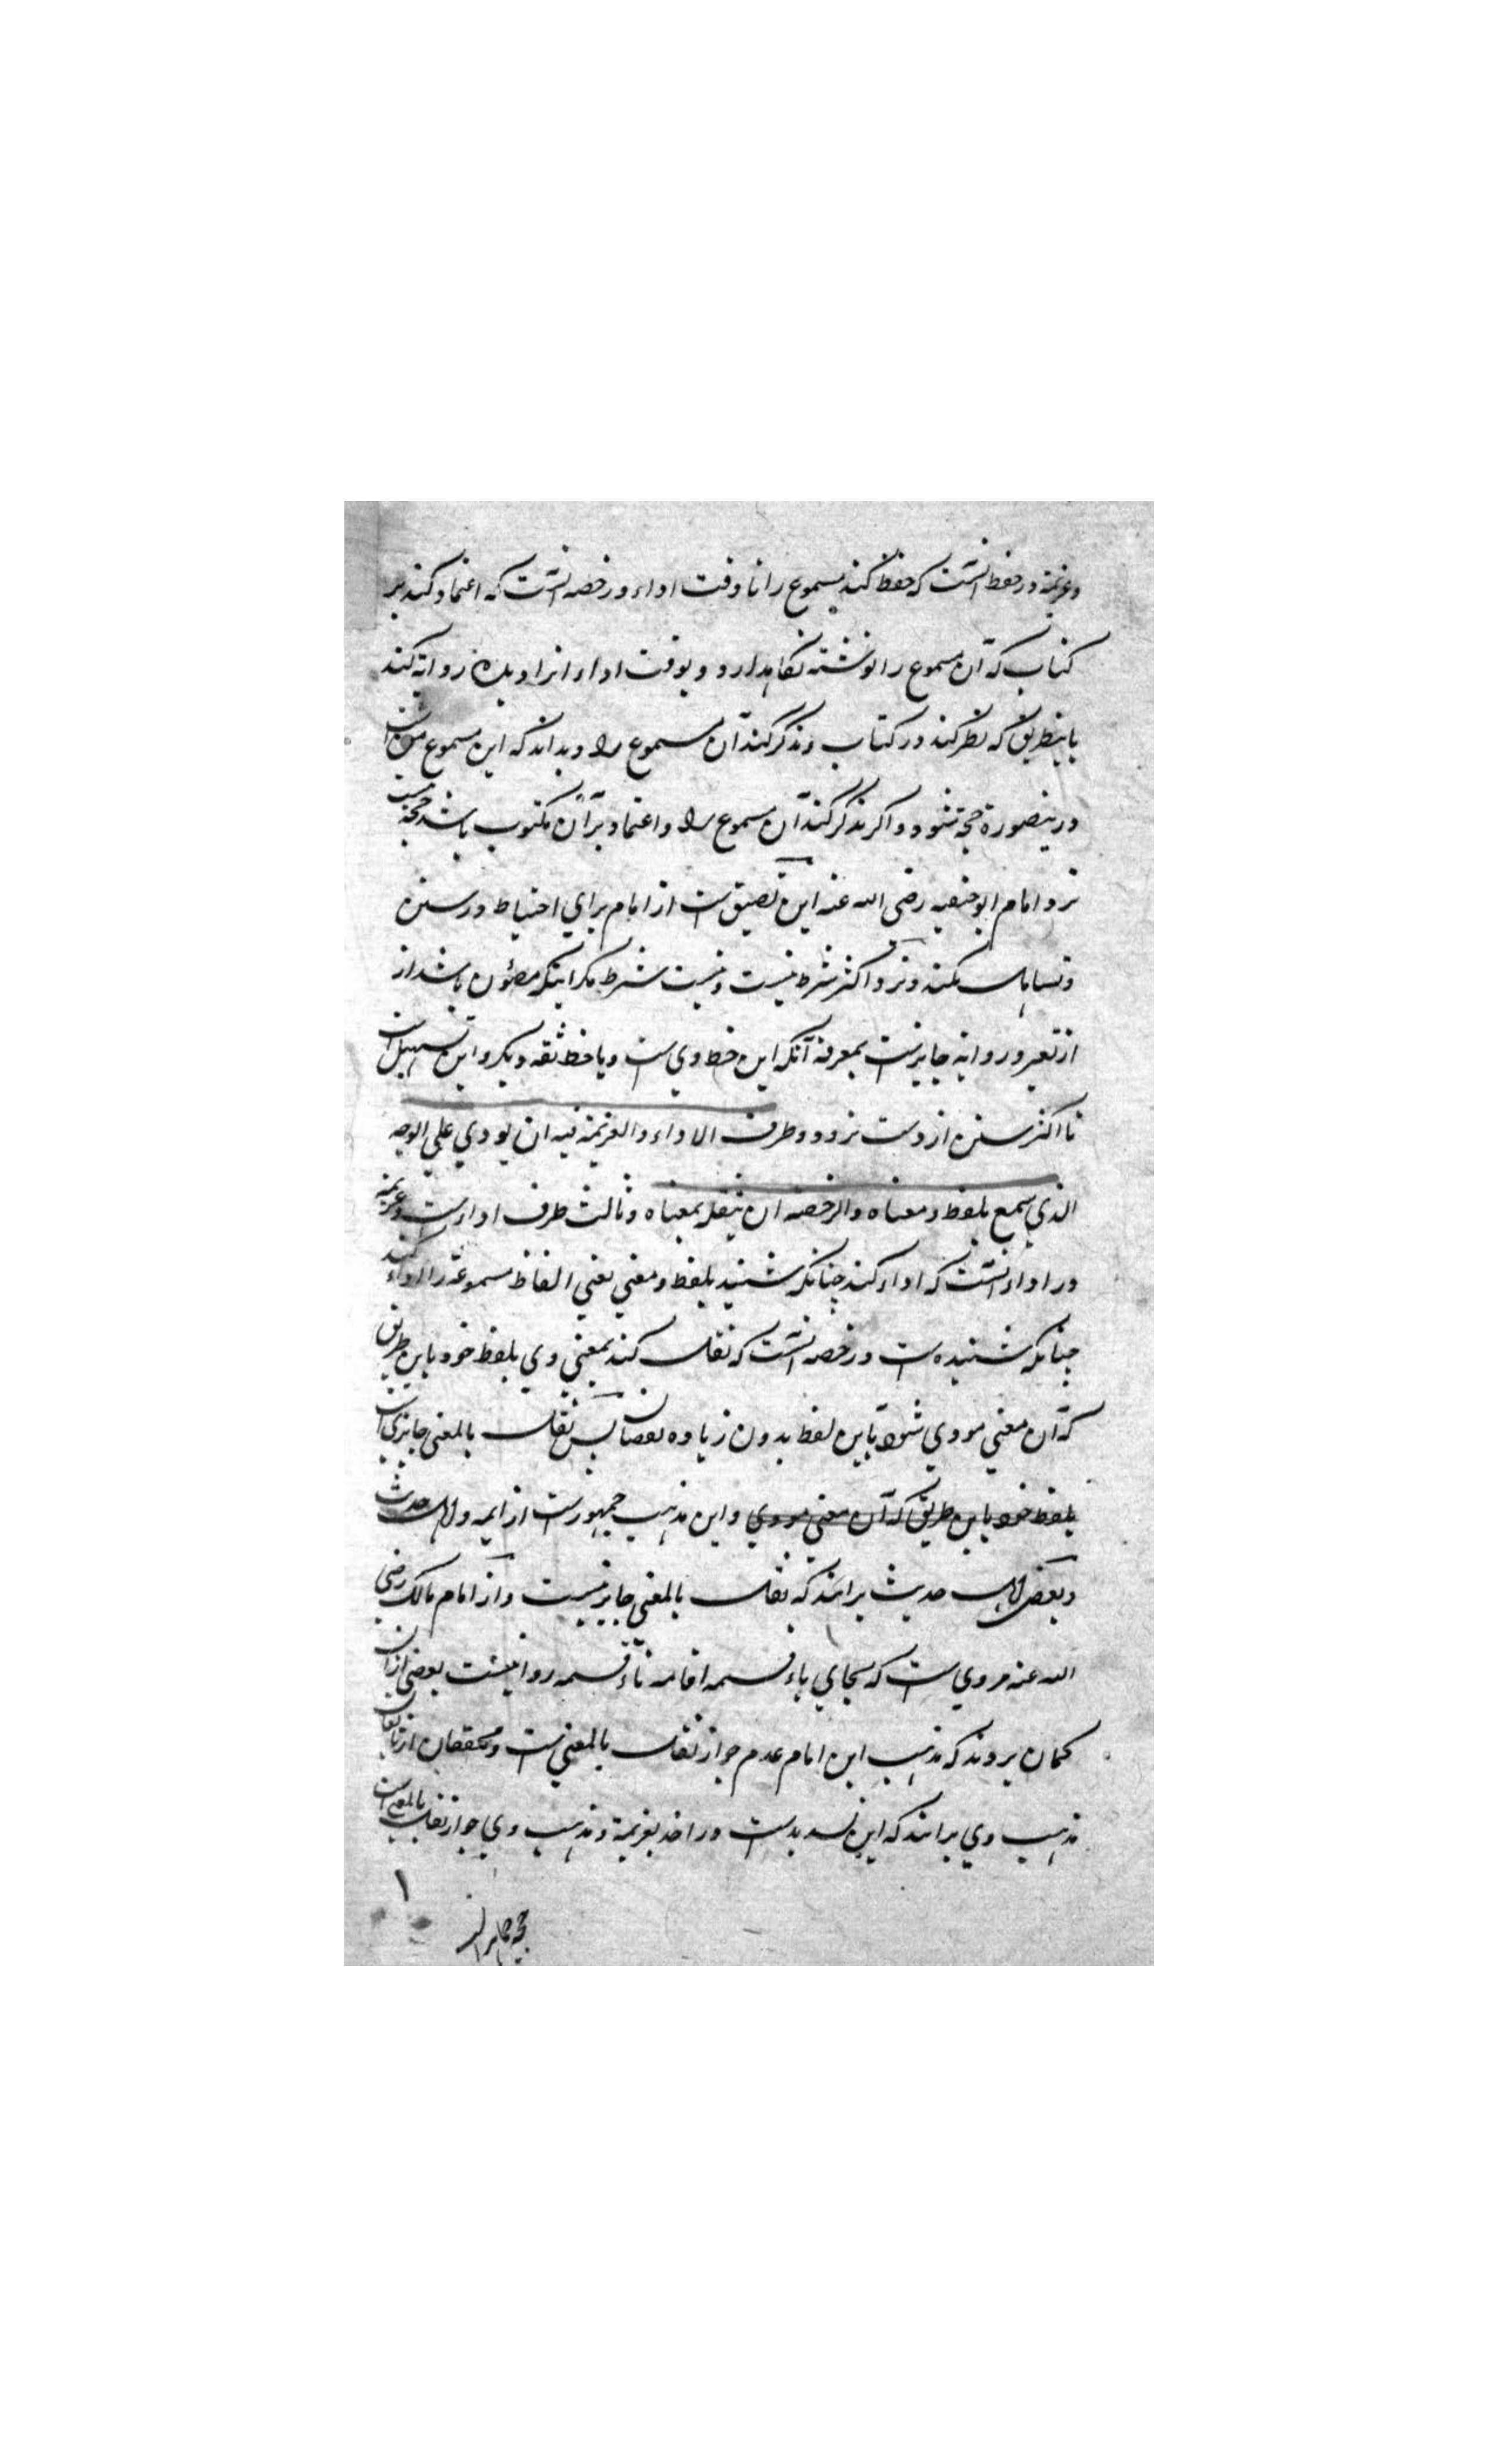 وعزیمة در حفظ آنست که حفظ کند مسموع را تا وقت اداء و رخصه آنست که اعتماد کند بر
کتاب که آن مسموع را نوشته نگاهدارد و بوقت اداء آنرا دیده روایة کند
باینطریق که نظر کند در کتاب و تذکر کند آن مسموع را و بداند که این مسموع منست
درینصورة حجة شود و اگر تذکر کند آن مسموع را و اعتماد بر آن مکتوب باشد حجة نیست
نزد امام ابو حنیفه رضی الله عنه این تضییق ست از امام برای احتیاط در سنن
و تساهل نکنند و نزد اکثر شرط نیست و نیست شرط مگر اینکه مصئون باشد از
از تغیر و روایة جایزست بمعرفة آنکه این خط وی ست و یا خط ثقه دیگر و این تسهیل ست
تا اکثر سنن از دست نرود وطرف الاداء والعزیمة فیه ان یودي علي الوجه
الذي سمع بلفظه ومعناه والرخصه ان ینقله بمعناه و ثالث طرف اداءست و عزیمة
در اداء آنست که اداء کند چنانکه شنید بلفظ و معنی یعنی الفاظ مسموعه را اداء کند
چنانکه شنیده ست و رخصه آنست که نقل کند بمعنی وی بلفظ خود باین طریق
که آن معنی مودي شود باین لفظ بدون زیاده نقصان پس نقل بالمعنی جایزي ست
بلفظ خود باین طریق که آن معنی مودي و این مذهب جمهورست از ایمه و اهل حدیث
و بعض اهل حدیث برانند که نقل بالمعنی جایز نیست و از امام مالک رضی
الله عنه مروي ست که بجاي باء قسمه اقامه تاء قسمه روا نیست بعضی ازان
گمان بروند که مذهب این امام عدم جواز نقل بالمعنی ست و محققان از
مذهب وي برانند که این تشدیدست در اخذ بعزیمة و مذهب وي جواز نقل بالمعنی ست
۱